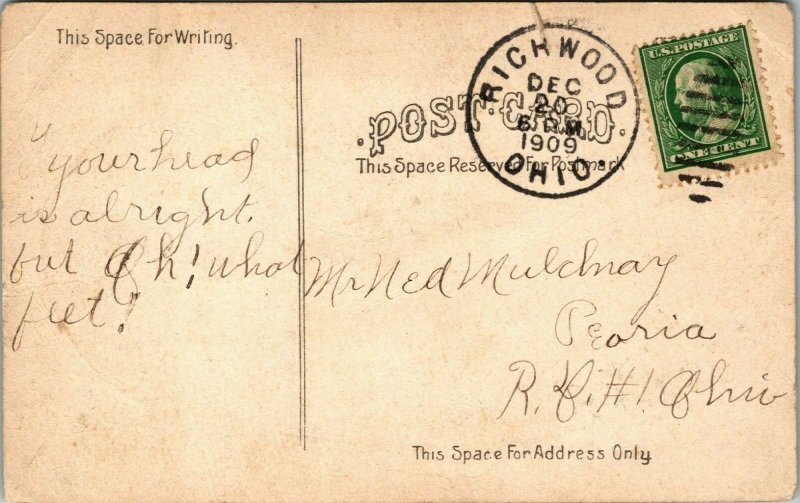 This Space For Writing.
RICHWOOD
DEC
20
6 P.M.
1909
OHIO.
U.S. POSTAGE
ONE CENT
.POST CARD.
This Space Reserved For Postmark
"your head
is alright.
but Oh! what
feet!
Mr Ned
Peoria
R. #1 Ohio
This Space For Address Only.